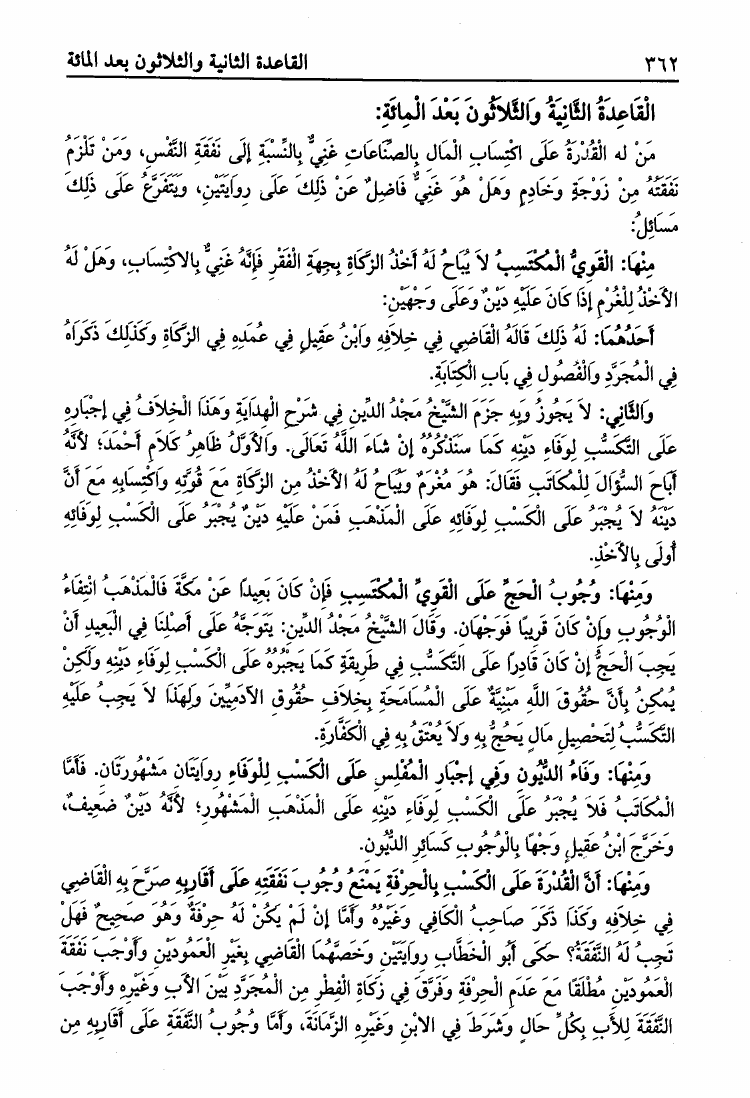 ٣٦٢ القاعدة الثانية والثلاثون بعد المائة
الْقَاعِدَةُ الثَّانِيَةُ وَالثَّلاَثُونَ بَعْدَ الْمِائَةِ:
مَنْ له الْقُدْرَةُ عَلَى اكْتِسَابِ الْمَالِ بِالصِّنَاعَاتِ غَنِيٌّ بِالنِّسْبَةِ إلَى نَفَقَةِ النَّفْسِ، وَمَنْ تَلْزَمُ
نَفَقَتُهُ مِنْ زَوْجَةٍ وَخَادِمٍ وَهَلْ هُوَ غَنِيٌّ فَاضِلٌ عَنْ ذَلِكَ عَلَى رِوَايَتَيْنِ، وَيَتَفَرَّعُ عَلَى ذَلِكَ
مَسَائِلُ:
مِنْهَا: الْقَوِيُّ الْمُكْتَسِبُ لاَ يُبَاحُ لَهُ أَخْذُ الزَّكَاةِ بِجِهَةِ الْفَقْرِ فَإِنَّهُ غَنِيٌّ بِالاكْتِسَابِ، وَهَلْ لَهُ
الأَخْذُ لِلْغُرْمِ إذَا كَانَ عَلَيْهِ دَيْنٌ وَعَلَى وَجْهَيْنِ:
أَحَدُهُمَا: لَهُ ذَلِكَ قَالَهُ الْقَاضِي فِي خِلاَفِهِ وَابْنُ عَقِيلٍ فِي عُمَدِهِ فِي الزَّكَاةِ وَكَذَلِكَ ذَكَرَاهُ
فِي الْمُجَرَّدِ وَالْفُصُولِ فِي بَابِ الْكِتَابَةِ.
وَالثَّانِي: لاَ يَجُوزُ وَبِهِ جَزَمَ الشَّيْخُ مَجْدُ الدِّينِ فِي شَرْحِ الْهِدَايَةِ وَهَذَا الْخِلاَفُ فِي إجْبَارِهِ
عَلَى التَّكَسُّبِ لِوَفَاءِ دَيْنِهِ كَمَا سَنَذْكُرُهُ إنْ شَاءَ اللَّهُ تَعَالَى. وَالأَوَّلُ ظَاهِرُ كَلاَمِ أَحْمَدَ؛ لأَنَّهُ
أَبَاحَ السُّؤَالَ لِلْمُكَاتَبِ فَقَالَ: هُوَ مُغْرَمٌ وَيُبَاحُ لَهُ الأَخْذُ مِنَ الزَّكَاةِ مَعَ قُوَّتِهِ وَاكْتِسَابِهِ مَعَ أَنَّ
دَيْنَهُ لاَ يُجْبَرُ عَلَى الْكَسْبِ لِوَفَائِهِ عَلَى الْمَذْهَبِ فَمَنْ عَلَيْهِ دَيْنٌ يُجْبَرُ عَلَى الْكَسْبِ لِوَفَائِهِ
أَولَى بِالأَخْذِ.
وَمِنْهَا: وُجُوبُ الْحَجِّ عَلَى الْقَوِيِّ الْمُكْتَسِبِ فَإِنْ كَانَ بَعِيدًا عَنْ مَكَّةَ فَالْمَذْهَبُ انْتِفَاءُ
الْوُجُوبِ وَإِنْ كَانَ قَرِيبًا فَوَجْهَانِ. وَقَالَ الشَّيْخُ مَجْدُ الدِّينِ: يَتَوَجَّهُ عَلَى أَصْلِنَا فِي الْبَعِيدِ أَنْ
يَجِبَ الْحَجُّ إنْ كَانَ قَادِرًا عَلَى التَّكَسُّبِ فِي طَرِيقَةٍ كَمَا يَجْبُرُهُ عَلَى الْكَسْبِ لِوَفَاءِ دَيْنِهِ وَلَكِنْ
يُمْكِنُ بِأَنَّ حُقُوقَ اللَّهِ مَبْنِيَّةٌ عَلَى الْمُسَامَحَةِ بِخِلاَفِ حُقُوقِ الآدَمِيِّينَ وَلِهَذَا لاَ يَجِبُ عَلَيْهِ
التَّكَسُّبُ لِتَحْصِيلِ مَالٍ يَحُجُّ بِهِ وَلاَ يُعْتَقُ بِهِ فِي الْكَفَّارَةِ.
وَمِنْهَا: وَفَاءُ الدُّيُونِ وَفِي إجْبَارِ الْمُفْلِسِ عَلَى الْكَسْبِ لِلْوَفَاءِ رِوَايَتَانِ مَشْهُورَتَانِ. فَأَمَّا
الْمُكَاتَبُ فَلاَ يُجْبَرُ عَلَى الْكَسْبِ لِوَفَاءِ دَيْنِهِ عَلَى الْمَذْهَبِ الْمَشْهُورِ؛ لأَنَّهُ دَيْنٌ ضَعِيفٌ،
وَخَرَّجَ ابْنُ عَقِيلٍ وَجْهًا بِالْوُجُوبِ كَسَائِرِ الدُّيُونِ.
وَمِنْهَا: أَنَّ الْقُدْرَةَ عَلَى الْكَسْبِ بِالْحِرْفَةِ يَمْنَعُ وُجُوبَ نَفَقَتِهِ عَلَى أَقَارِبِهِ صَرَّحَ بِهِ الْقَاضِي
فِي خِلاَفِهِ وَكَذَا ذَكَرَ صَاحِبُ الْكَافِي وَغَيْرُهُ وَأَمَّا إنْ لَمْ يَكُنْ لَهُ حِرْفَةٌ وَهُوَ صَحِيحٌ فَهَلْ
تَجِبُ لَهُ النَّفَقَةُ؟ حَكَى أَبُو الْخَطَّابِ رِوَايَتَيْنِ وَخَصَّهُمَا الْقَاضِي بِغَيْرِ الْعَمُودَيْنِ وَأَوْجَبَ نَفَقَةَ
الْعَمُودَيْنِ مُطْلَقًا مَعَ عَدَمِ الْحِرْفَةِ وَفَرَّقَ فِي زَكَاةِ الْفِطْرِ مِنَ الْمُجَرَّدِ بَيْنَ الأَبِ وَغَيْرِهِ وَأَوْجَبَ
النَّفَقَةَ لِلأَبِ بِكُلِّ حَالٍ وَشَرَطَ فِي الابْنِ وَغَيْرِهِ الزَّمَانَةَ، وَأَمَّا وُجُوبُ النَّفَقَةِ عَلَى أَقَارِبِهِ مِن